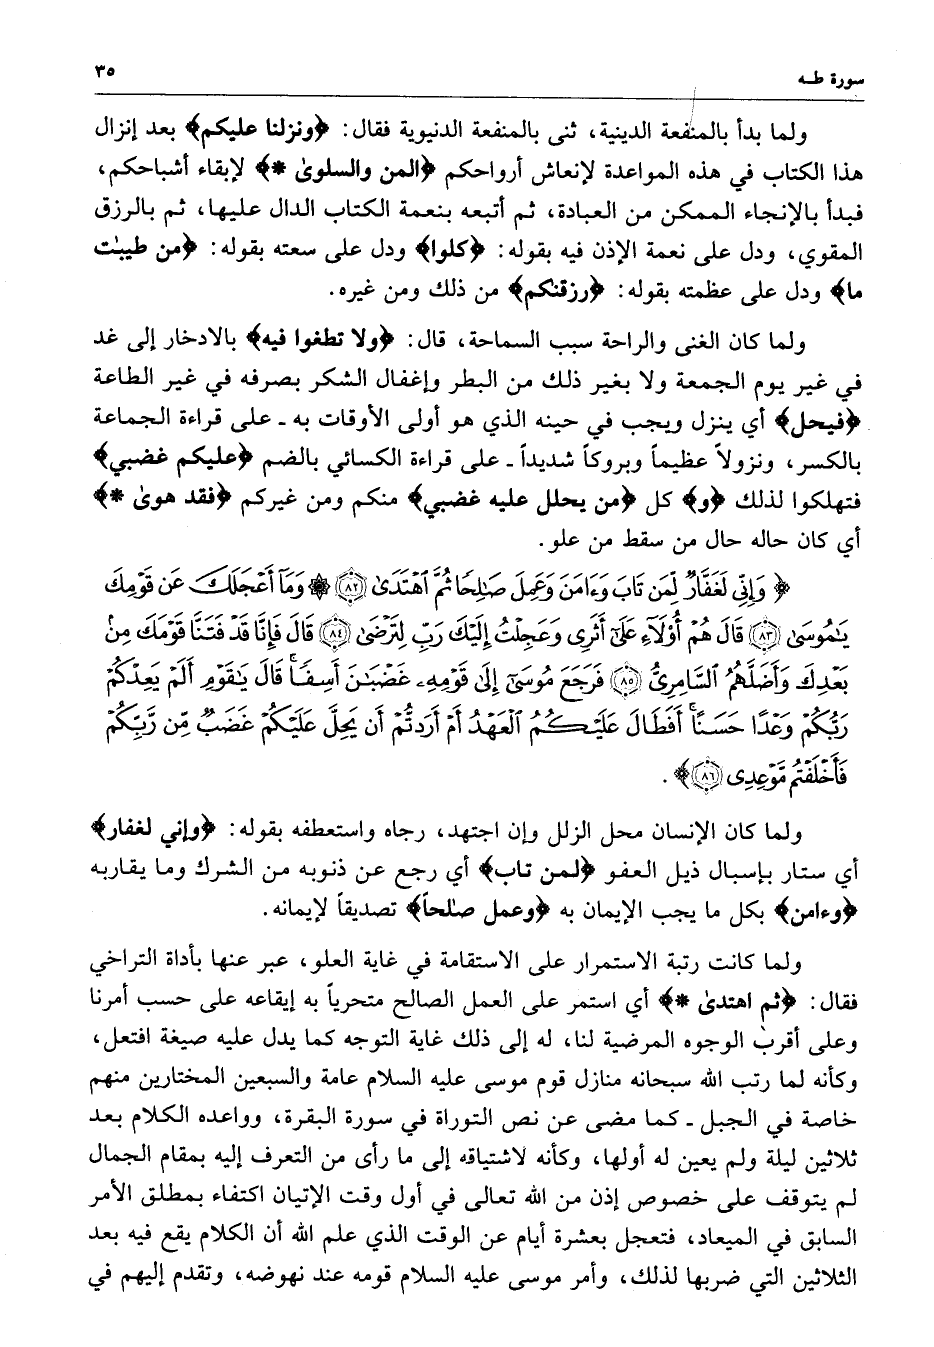 سورة طـه
٣٥
ولما بدأ بالمنفعة الدينية، ثنى بالمنفعة الدنيوية فقال: ﴿ونزلنا عليكم﴾ بعد إنزال
هذا الكتاب في هذه المواعدة لإنعاش أرواحكم ﴿المن والسلوىٰ *﴾ لإبقاء أشباحكم،
فبدأ بالإنجاء الممكن من العبادة، ثم أتبعه بنعمة الكتاب الدال عليها، ثم بالرزق
المقوي، ودل على نعمة الإذن فيه بقوله: ﴿كلوا﴾ ودل على سعته بقوله: ﴿من طيبٰت
ما﴾ ودل على عظمته بقوله: ﴿رزقنٰكم﴾ من ذلك ومن غيره.
ولما كان الغنى والراحة سبب السماحة، قال: ﴿ولا تطغوا فيه﴾ بالادخار إلى غد
في غير يوم الجمعة ولا بغير ذلك من البطر وإغفال الشكر بصرفه في غير الطاعة
﴿فيحل﴾ أي ينزل ويجب في حينه الذي هو أولى الأوقات به ـ على قراءة الجماعة
بالكسر، ونزولاً عظيماً وبروكاً شديداً ـ على قراءة الكسائي بالضم ﴿عليكم غضبي﴾
فتهلكوا لذلك ﴿و﴾ كل ﴿من يحلل عليه غضبي﴾ منكم ومن غيركم ﴿فقد هوىٰ *﴾
أي كان حاله حال من سقط من علو.
﴿وَإِنِّي لَغَفَّارٌ لِّمَن تَابَ وَءَامَنَ وَعَمِلَ صَـٰلِحًا ثُمَّ ٱهْتَدَىٰ ﴿٨٢﴾ ۞ وَمَآ أَعْجَلَكَ عَن قَوْمِكَ
يَـٰمُوسَىٰ ﴿٨٣﴾ قَالَ هُمْ أُوْلَآءِ عَلَىٰٓ أَثَرِى وَعَجِلْتُ إِلَيْكَ رَبِّ لِتَرْضَىٰ ﴿٨٤﴾ قَالَ فَإِنَّا قَدْ فَتَنَّا قَوْمَكَ مِنۢ
بَعْدِكَ وَأَضَلَّهُمُ ٱلسَّامِرِىُّ ﴿٨٥﴾ فَرَجَعَ مُوسَىٰٓ إِلَىٰ قَوْمِهِۦ غَضْبَـٰنَ أَسِفًا ۚ قَالَ يَـٰقَوْمِ أَلَمْ يَعِدْكُمْ
رَبُّكُمْ وَعْدًا حَسَنًا ۚ أَفَطَالَ عَلَيْكُمُ ٱلْعَهْدُ أَمْ أَرَدتُّمْ أَن يَحِلَّ عَلَيْكُمْ غَضَبٌ مِّن رَّبِّكُمْ
فَأَخْلَفْتُم مَّوْعِدِى ﴿٨٦﴾﴾.
ولما كان الإنسان محل الزلل وإن اجتهد، رجاه واستعطفه بقوله: ﴿وإني لغفار﴾
أي ستار بإسبال ذيل العفو ﴿لمن تاب﴾ أي رجع عن ذنوبه من الشرك وما يقاربه
﴿وءامن﴾ بكل ما يجب الإيمان به ﴿وعمل صٰلحاً﴾ تصديقاً لإيمانه.
ولما كانت رتبة الاستمرار على الاستقامة في غاية العلو، عبر عنها بأداة التراخي
فقال: ﴿ثم اهتدىٰ *﴾ أي استمر على العمل الصالح متحرياً به إيقاعه على حسب أمرنا
وعلى أقرب الوجوه المرضية لنا، له إلى ذلك غاية التوجه كما يدل عليه صيغة افتعل،
وكأنه لما رتب الله سبحانه منازل قوم موسى عليه السلام عامة والسبعين المختارين منهم
خاصة في الجبل ـ كما مضى عن نص التوراة في سورة البقرة، وواعده الكلام بعد
ثلاثين ليلة ولم يعين له أولها، وكأنه لاشتياقه إلى ما رأى من التعرف إليه بمقام الجمال
لم يتوقف على خصوص إذن من الله تعالى في أول وقت الإتيان اكتفاء بمطلق الأمر
السابق في الميعاد، فتعجل بعشرة أيام عن الوقت الذي علم الله أن الكلام يقع فيه بعد
الثلاثين التي ضربها لذلك، وأمر موسى عليه السلام قومه عند نهوضه، وتقدم إليهم في